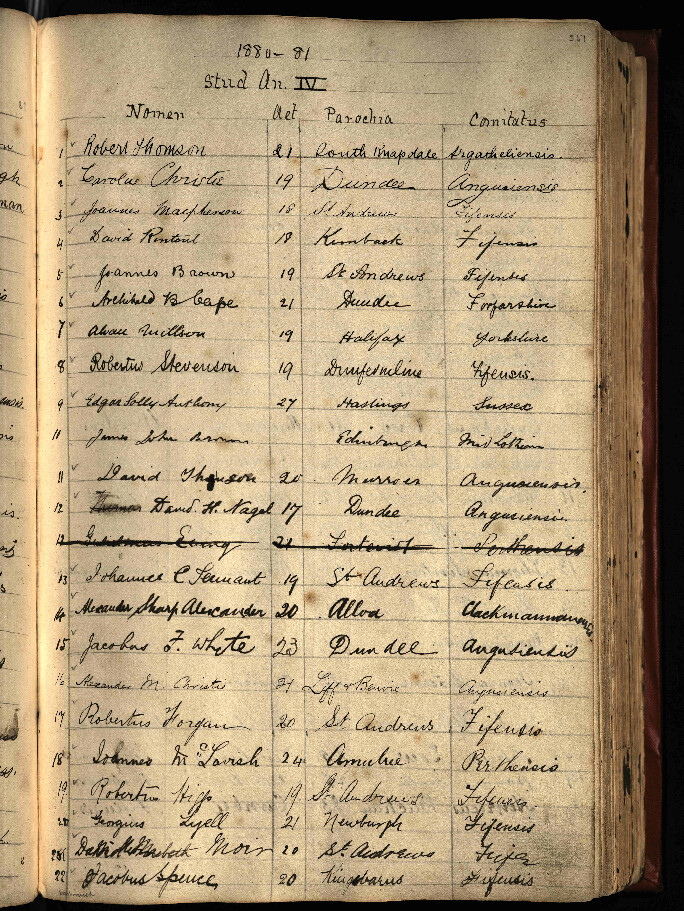 261
1880-81
Stud An. IV
Nomen Aet Parochia Comitatus
1 Robert Thomson 21 South Knapdale Argatheliensis.
2 Carolus Christie 19 Dundee Angusiensis
3 Joannes Macpherson 18 St Andrews Fifensis
4 David Rintoul 18 Kemback Fifensis
5 Joannes Brown 19 St Andrews Fifensis
6 Archibald B Cape 21 Dundee Forfarshire
7 Willson 19 Halifax Yorkshire
8 Robertus Stevenson 19 Dunfermline Fifensis.
9 Edgar Solly Anthony 27 Hastings Sussex
10 James John Brown Edinburgh Mid Lothian
11 David Thomson 20 Murroes Angusiensis.
12 Thomas David. H. Nagel 17 Dundee Angusiensis
12 Ewing 21 Forteviot Perthensis
13 Johannes C Tennant 19 St Andrews Fifensis
14 Alexander Sharp Alexander 20 Alloa Clackmannanensis
15 Jacobus F. Whyte 23 Dundee Angusiensis
16 Alexander M. Christie 21 Liff & Benvie Angusiensis
17 Robertus Forgan 20 St Andrews Fifensis
18 Johannes McLavish 24 Amulree Perthensis
19 Robertus Higs 19 St Andrews Fifensis
20 Georgius Lyell 21 Newburgh Fifensis
21 Moir 20 St. Andrews Fife
22 Jacobus Spence 20 Kingsbarns Fifensis